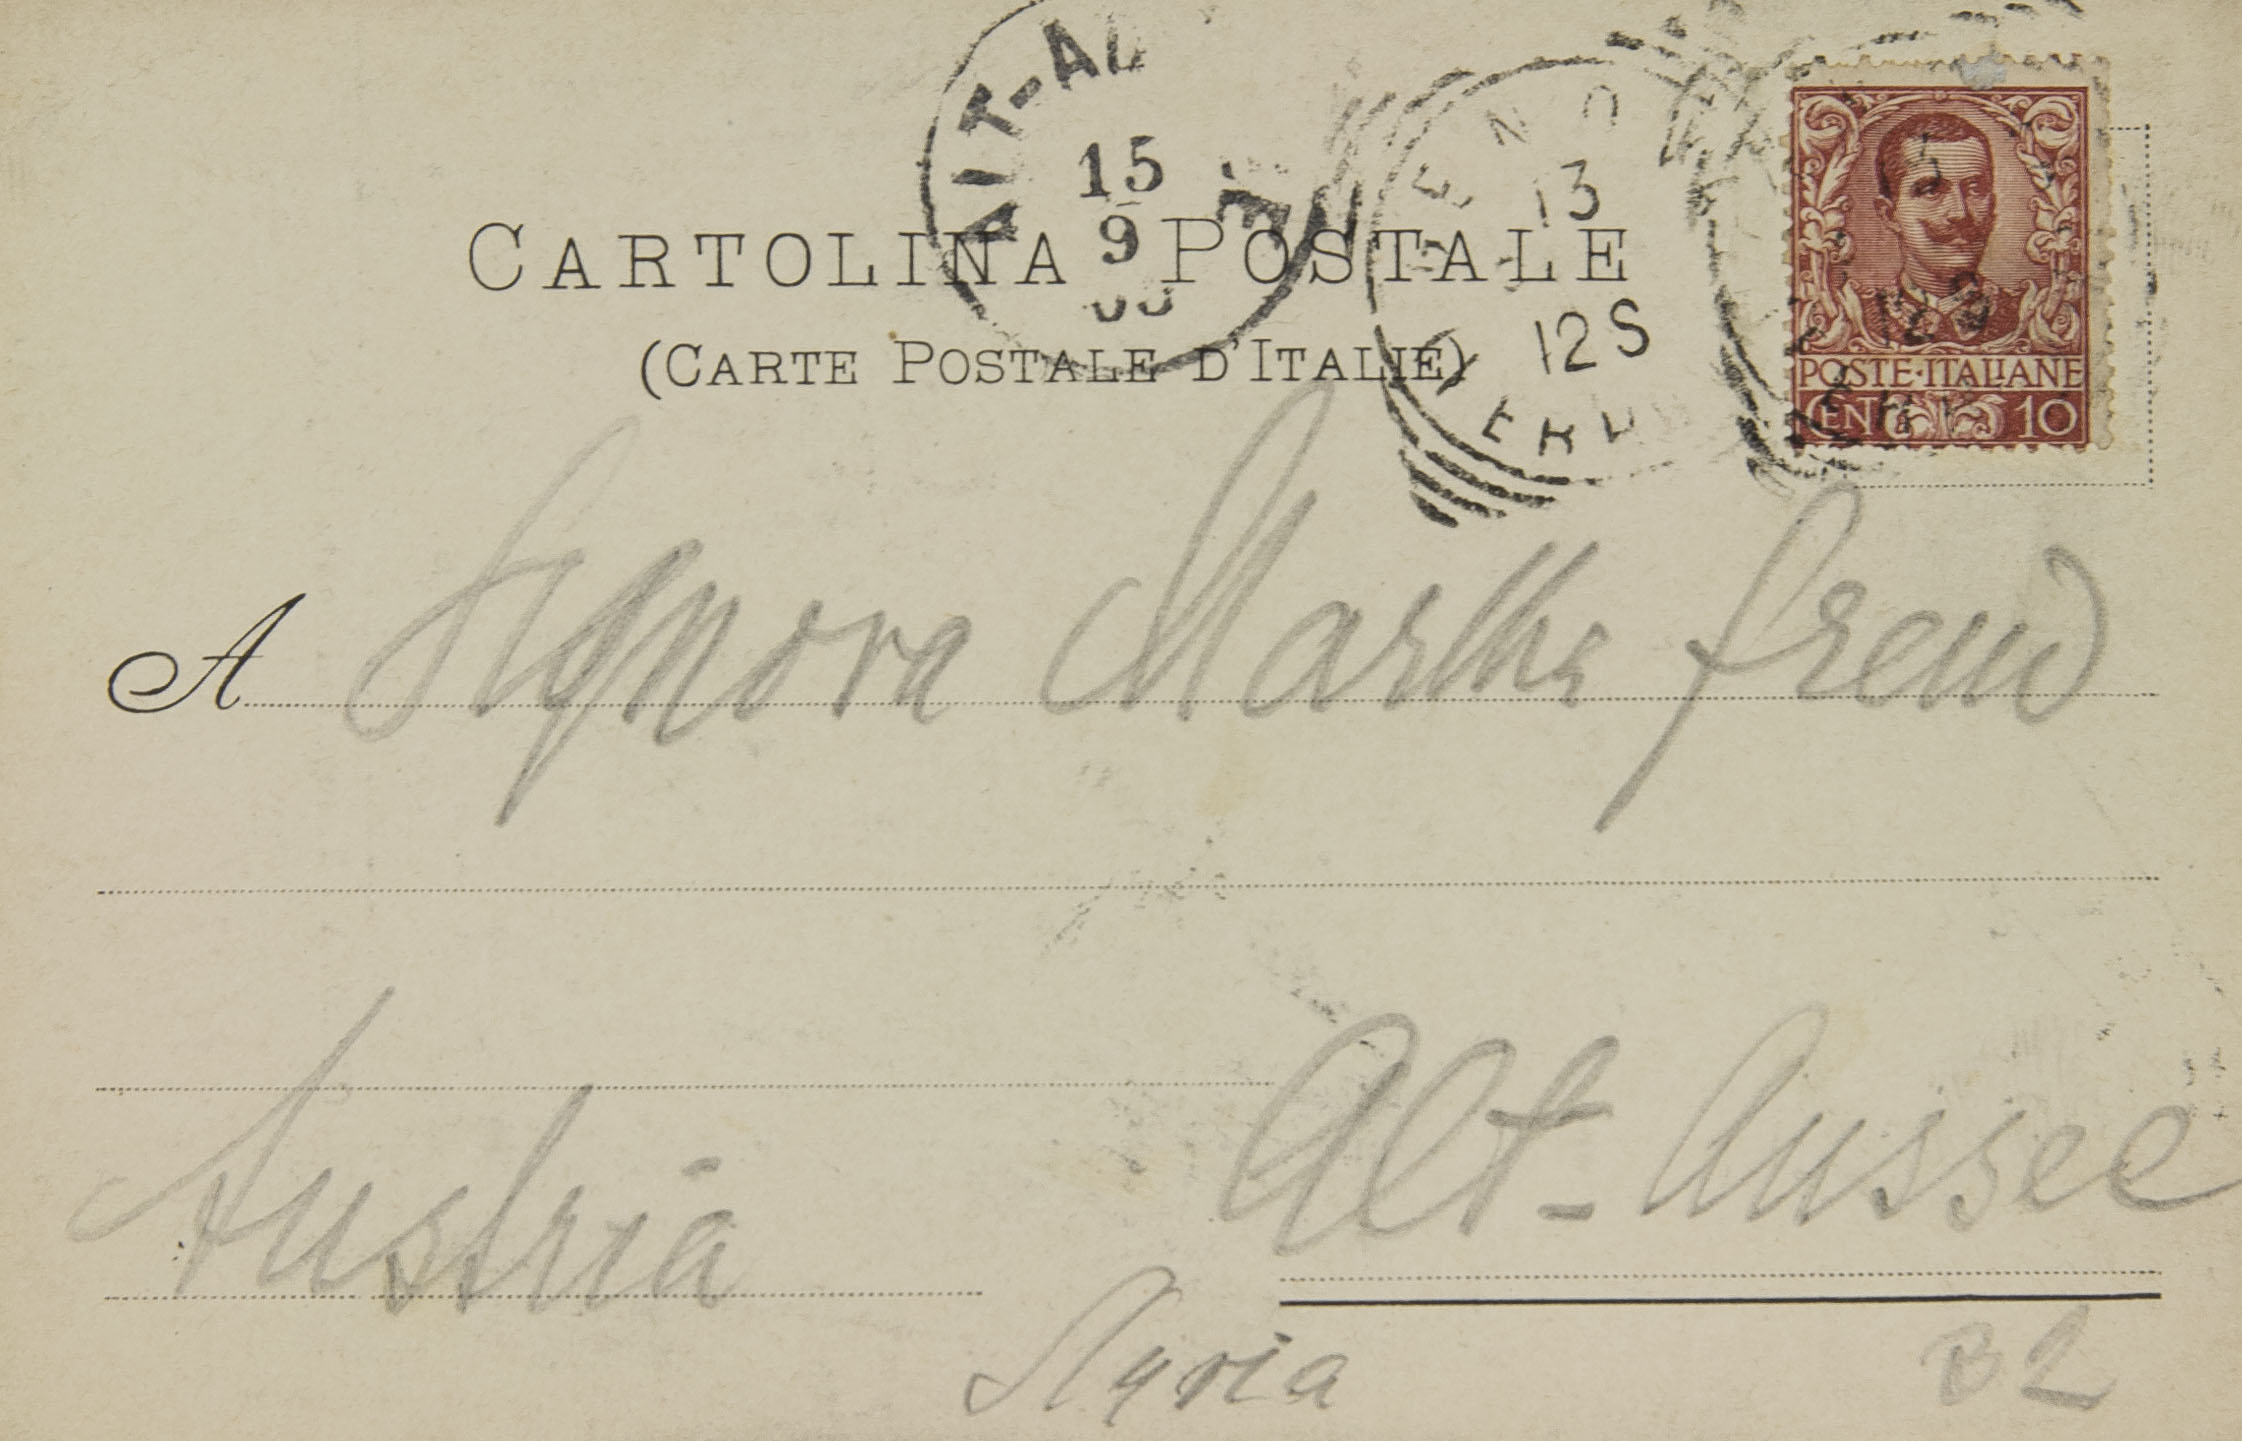 AIT-AU
15
9
05
ENO
13
12 S
FERR
CARTOLINA POSTALE
(CARTE POSTALE D'ITALIE)
POSTE·ITALIANE
CENT 10
A Signora Martha Freud
Alt-Aussee
Austria
Styria
B2